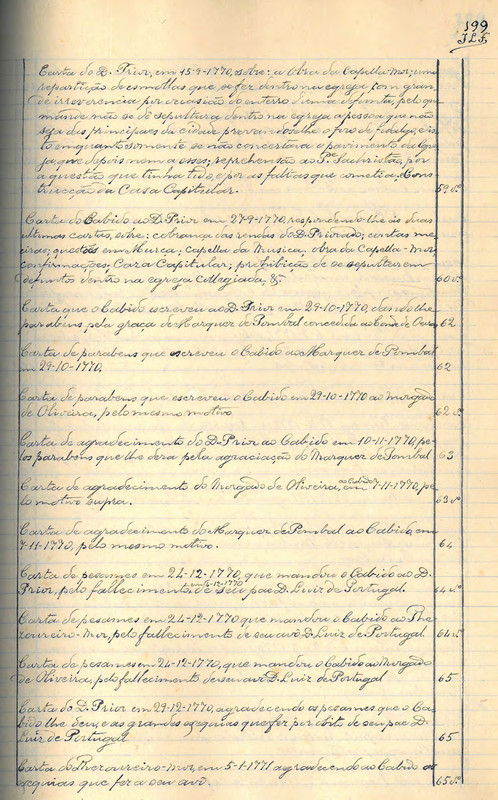 199
J.L.F.
Carta do D. Prior, em 15-9-1770, sobre: a obra da Capella-Mor; uma
repartição de esmollas que se fez dentro na egreja, com gran-
de irreverencia por occasião do enterro d'uma defunta, pelo que
manda não se dê sepultura dentro na egreja a pessoa que não
seja das principaes da cidade provando-se-lhe o fôro de fidalgo, e is-
to emquanto somente se não concertára o pavimento da egre-
ja, que depois nem a esses; reprehensão ao Pe. Sachristão, por
a questão que tinha tido, e por as faltas que comettia; Cons-
trucção da Casa Capitular. 59 vº
Carta do Cabido ao D. Prior em 27-9-1770, respondendo-lhe ás duas
ultimas cartas, sobre: cobrança das rendas do D. Priorado; contas
questões em Murça; capella da Musica; obra da Capella-Mor
confirmações; Caza Capitular; prohibição de se sepultarem
defuntos dentro na egreja Collegiada, &. 60 vº
Carta que o Cabido escreveu ao D. Prior em 29-10-1770, dando-lhe
parabens pela graça de Marquez de Pombal concedida ao Conde de Oeiras 62
Carta de parabens que escreveu o Cabido ao Marquez de Pombal
em 29-10-1770. 62
Carta de parabens que escreveu o Cabido em 29-10-1770 ao morgado
de Oliveira, pelo mesmo motivo 62 vº
Carta de agradecimento do D. Prior ao Cabido em 10-11-1770, pe-
los parabens que lhe dera pela agraciação do Marquez de Pombal 63
Carta de agradecimento do Morgado de Oliveira, ao Cabido em 7-11-1770, pe-
lo motivo supra. 63 vº
Carta de agradecimento do Marquez de Pombal ao Cabido, em
7-11-1770, pelo mesmo motivo. 64
Carta de pesames em 24-12-1770, que mandou o Cabido ao D.
Prior, pelo fallecimento de seu pae D. Luiz de Portugal. 64 vº
Carta de pesames em 24-12-1770 que mandou o Cabido ao The-
zoureiro-Mor, pelo fallecimento de seu avô D. Luiz de Portugal 64 vº
Carta de pesames em 24-12-1770, que mandou o Cabido ao Morgado
de Oliveira, pelo fallecimento de seu avô D. Luiz de Portugal 65
Carta do D. Prior em 29-12-1770, agradecendo os pesames que o Ca-
bido lhe deu, e as grandes exequias que fez por obito de seu pae D.
Luiz de Portugal 65
Carta do Thezoureiro-Mor, em 5-1-1771 agradecendo ao Cabido as
exequias que fez a seu avô. 65 vº